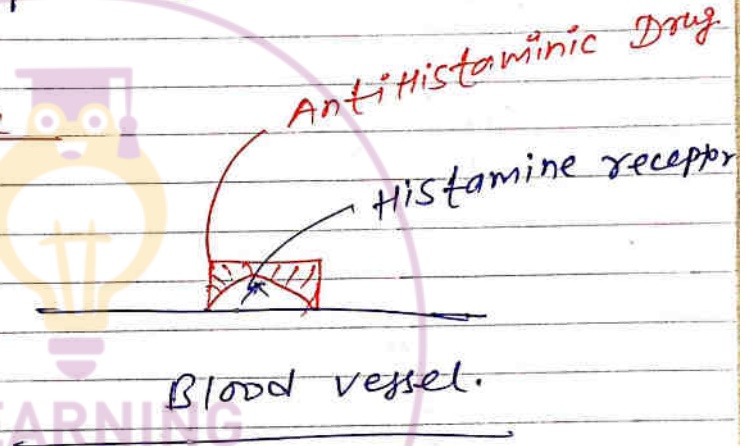 AntiHistaminic Drug
Histamine receptor
Blood vessel.
EARNING